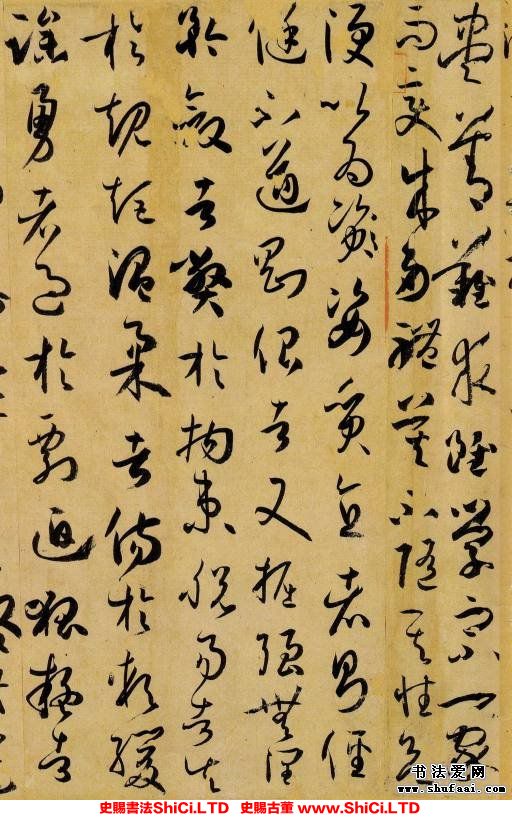 盡善難求雖學宗一家
而變成多體莫不隨其性欲
便以為資姿質直者則俓
侹不遒剛佷者又掘強無潤
矜斂者弊於拘束脫易者失
於規矩溫柔者傷於軟緩
躁勇者過於剽迫狐疑者
书法爱网
www.shufaai.com
史賜書法ShiCi.LTD 史賜古董 www.ShiCi.LTD